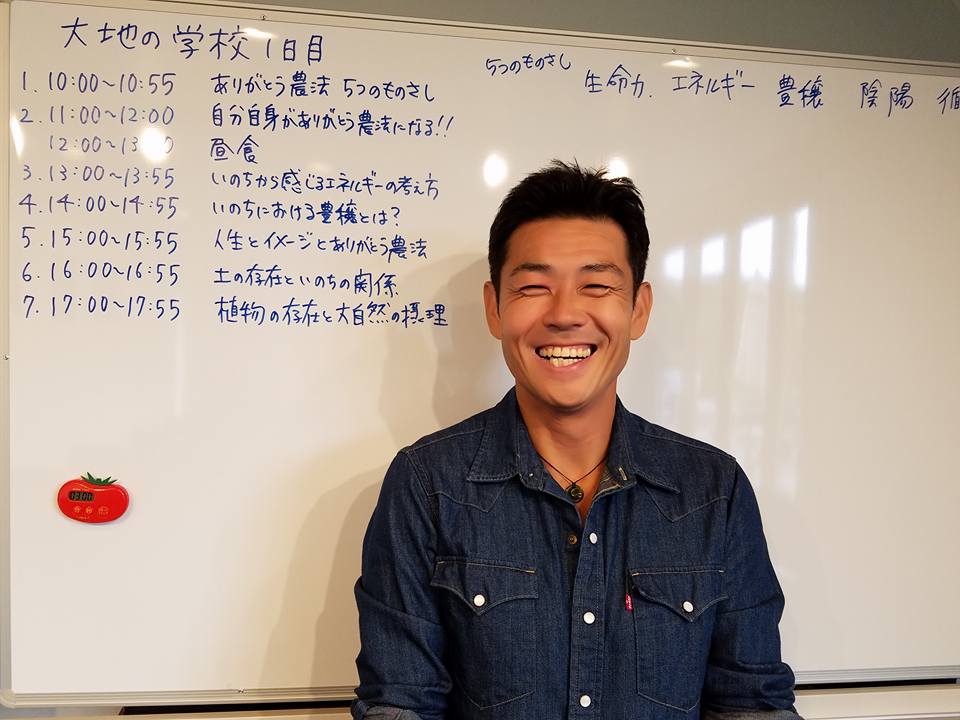 大地の学校 1日目
1. 10:00〜10:55 ありがとう農法 5つのものさし
2. 11:00〜12:00 自分自身がありがとう農法になる!!
12:00〜13:00 昼食
3. 13:00〜13:55 いのちから感じるエネルギーの考え方
4. 14:00〜14:55 いのちにおける豊穣とは?
5. 15:00〜15:55 人生とイメージとありがとう農法
6. 16:00〜16:55 土の存在といのちの関係
7. 17:00〜17:55 植物の存在と大自然の摂理
5つのものさし
生命力. エネルギー 豊穣 陰陽 循
13:00